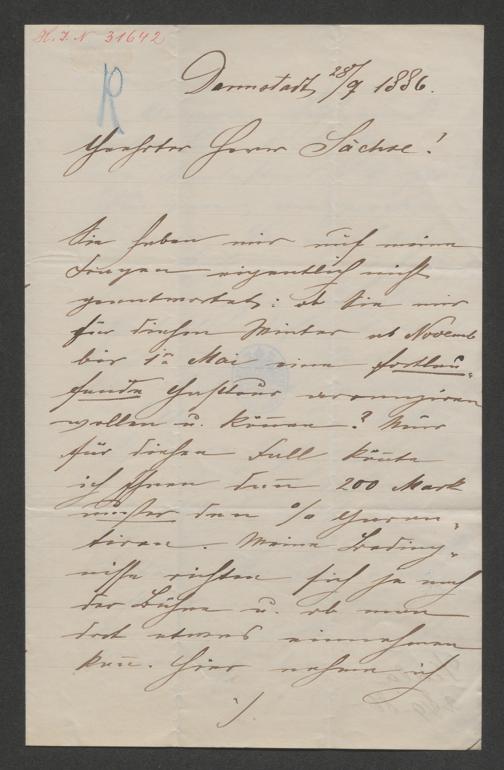 H. I. N 31642
R
Darmstadt, 28/9 1886.
Geehrter Herr Sachse!
Sie haben mir auf meine
Fragen eigentlich nicht
geantwortet: ob Sie mir
für diesen Winter ab Novemb
bis 1n Mai eine fortlau-
fende Gasttour arrangiren
wollen u. können? Nur
für diesen Fall könnte
ich Ihnen dann 200 Mark
außer den % garan-
tiren. Meine Beding-
nisse richten sich ja nach
der Bühne u. ob man
dort etwas einnehmen
kann. Hier nehme ich
./.